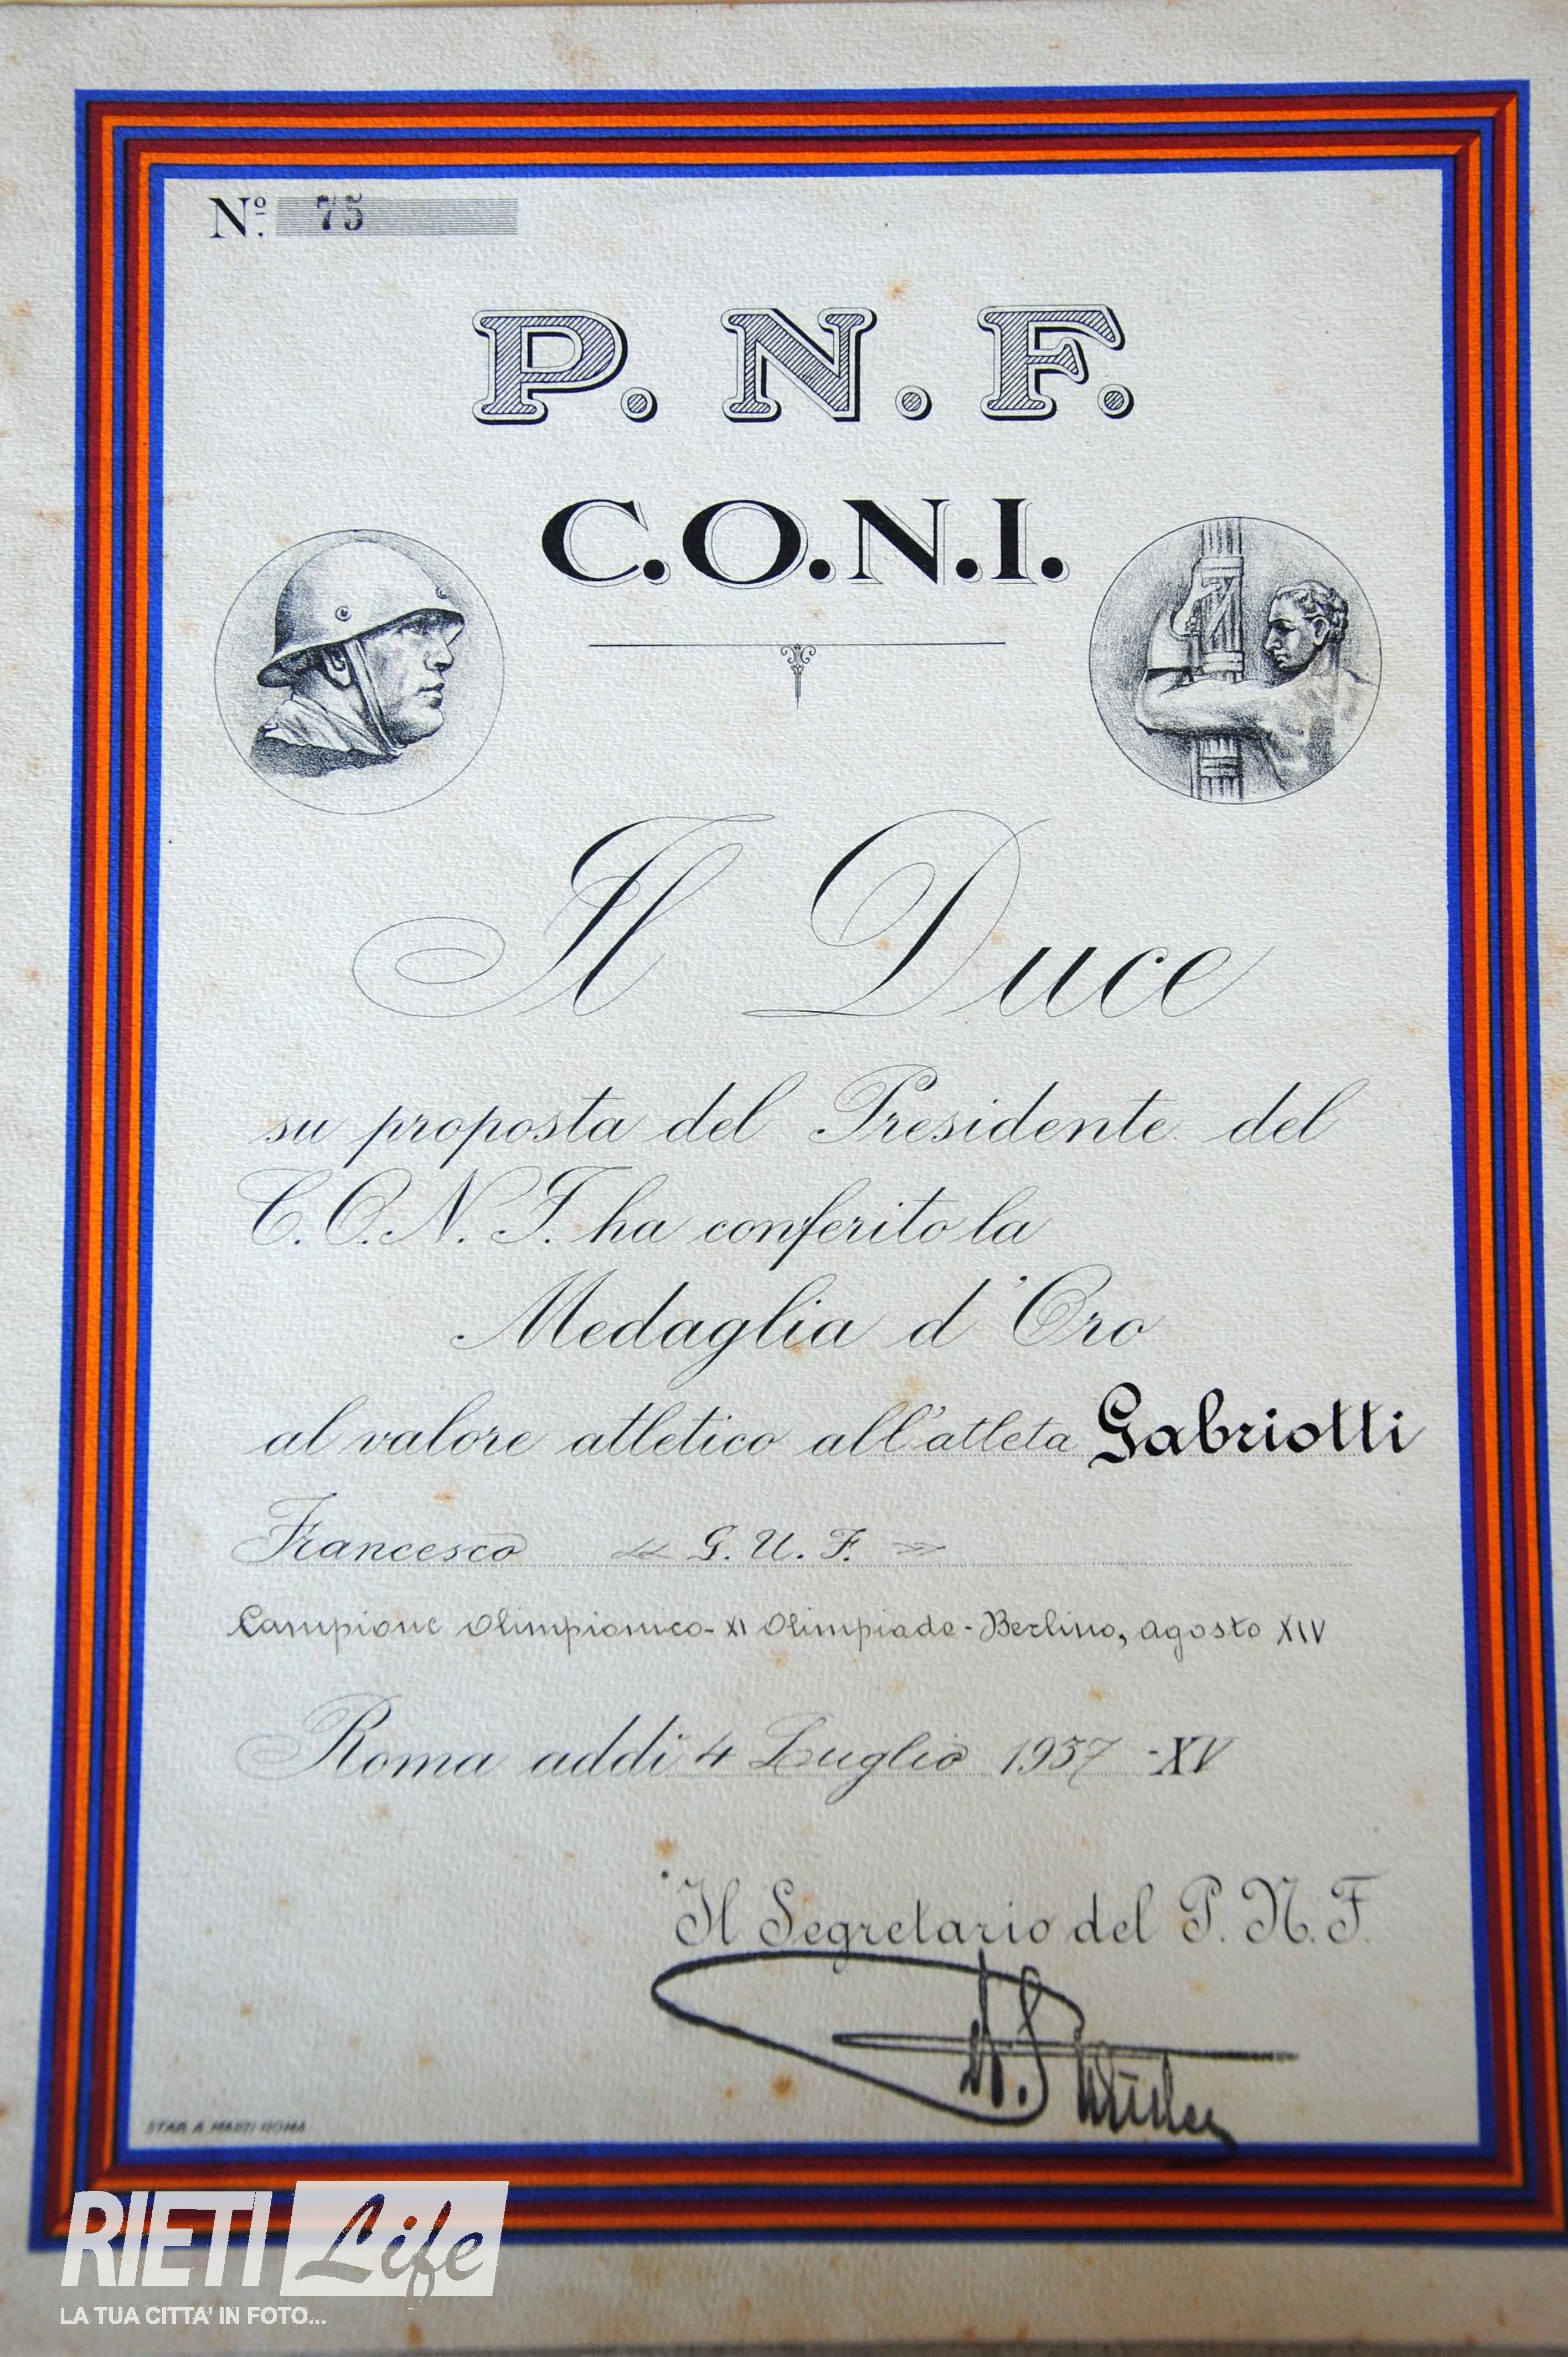 Nº. 75
P. N. F.
C.O.N.I.
Il Duce
su proposta del Presidente del
C.O.N.I. ha conferito la
Medaglia d'Oro
al valore atletico all'atleta Gabriotti
Francesco « G. U. F. »
Campione Olimpionico - XI Olimpiade - Berlino, agosto XIV
Roma addì 4 Luglio 1937 - XV
Il Segretario del P. N. F.
STAB. A. MARZI-ROMA
RIETI Life
LA TUA CITTA' IN FOTO...